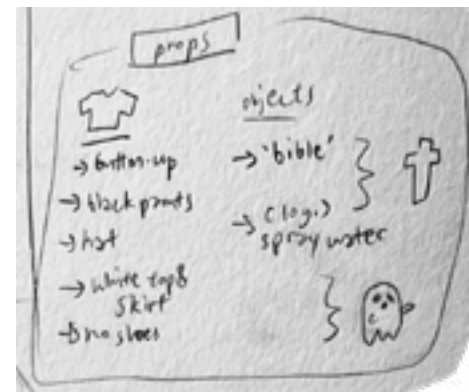 props
→ button-up
→ black pants
→ hat
→ white top &
skirt
→ no shoes
objects
→ 'bible'
→ (log.)
spray water